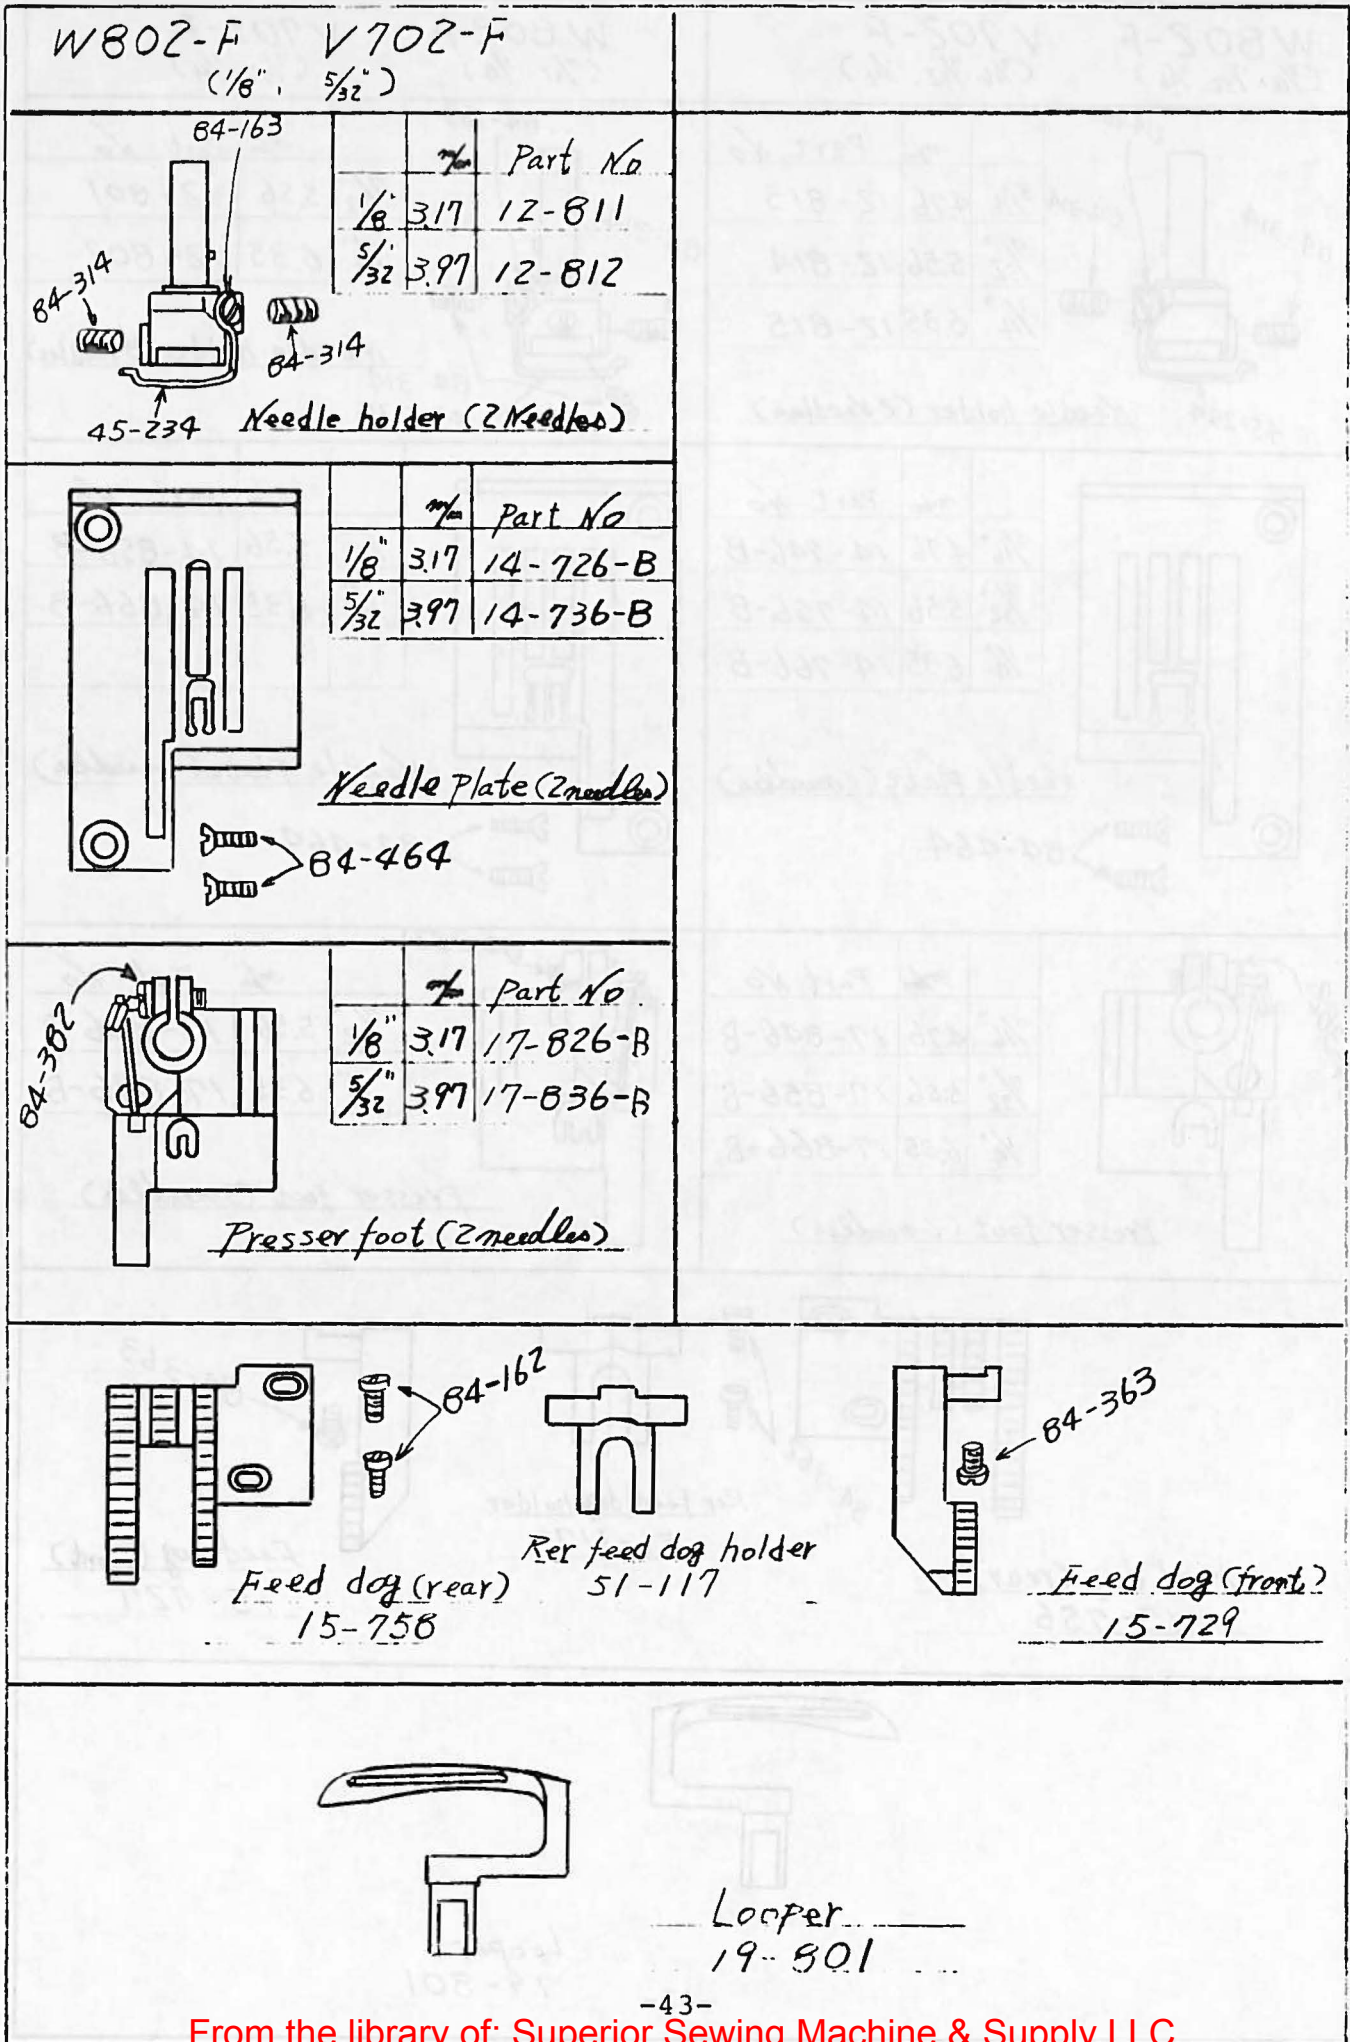 W802-F V702-F
(1/8", 5/32")
84-163
m/m Part No
1/8" 3.17 12-811
5/32" 3.97 12-812
84-314
84-314
45-234
Needle holder (2 Needles)
m/m Part No
1/8" 3.17 14-726-B
5/32" 3.97 14-736-B
Needle Plate (2 needles)
84-464
84-382
m/m Part No
1/8" 3.17 17-826-B
5/32" 3.97 17-836-B
Presser foot (2 needles)
84-162
84-363
Rer feed dog holder
51-117
Feed dog (rear)
15-758
Feed dog (front)
15-729
Looper
19-801
-43-
From the library of: Superior Sewing Machine & Supply LLC